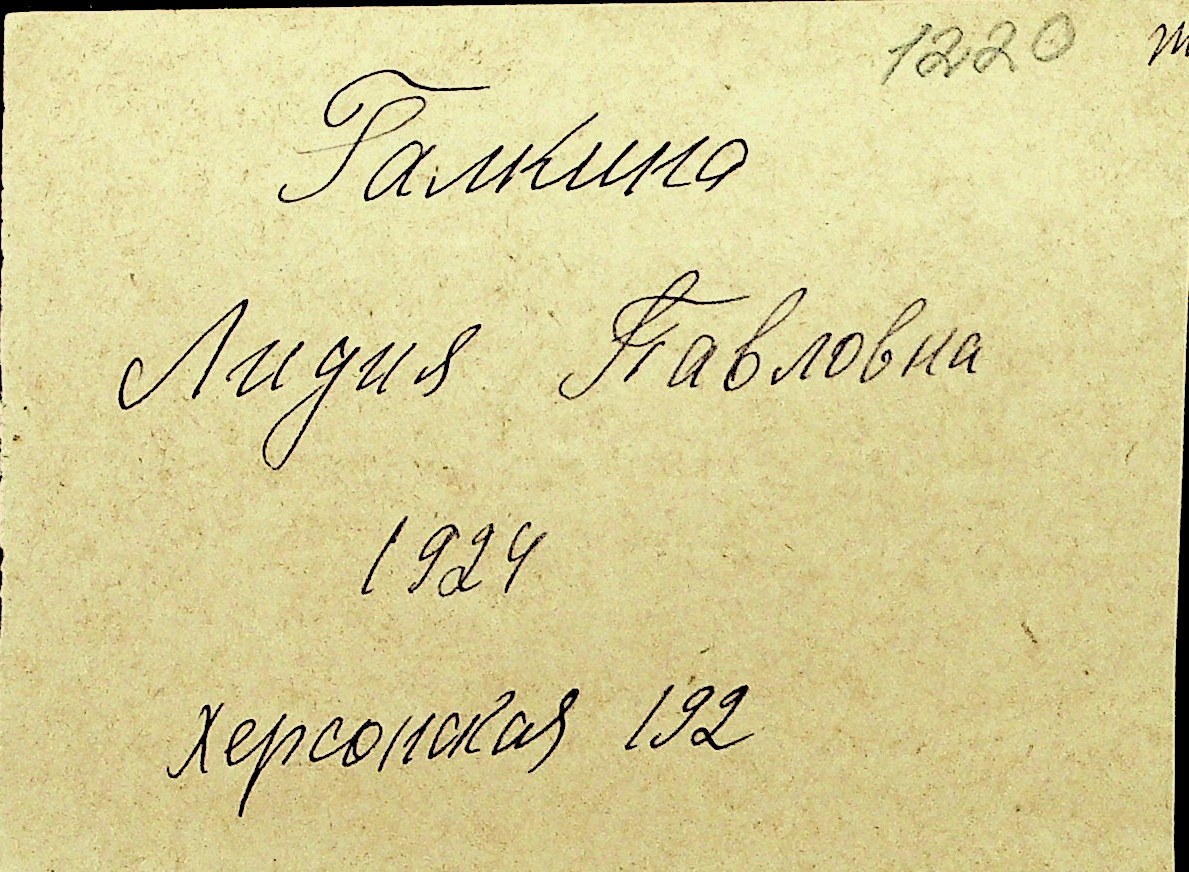 1220
Галкина
Лидия Павловна
1924
Херсонская 192